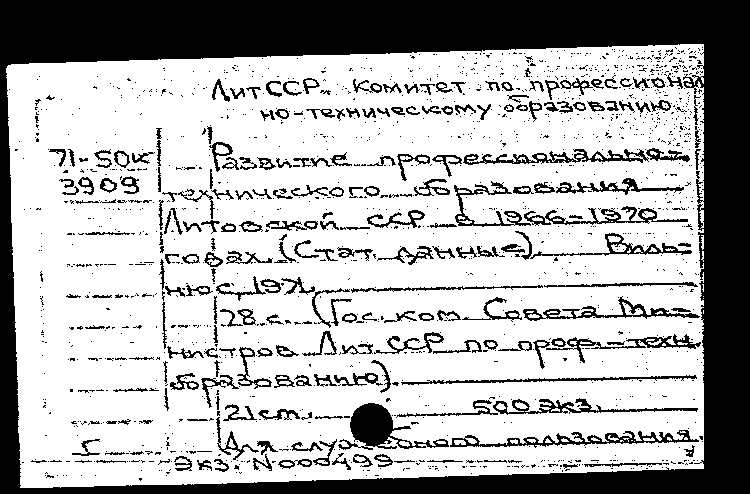 Лит ССР. Комитет по профессионал
но-техническому образованию.
71-50к
3909
Развитие профессионально-
технического образования
Литовской ССР в 1966-1970
годах. (Стат. данные). Виль-
нюс, 1971.
28 с. (Гос. ком. Совета Ми-
нистров Лит. ССР по проф.-техн.
образованию).
21 cm. 500 экз.
Для служебного пользования.
Г
Экз. N000499